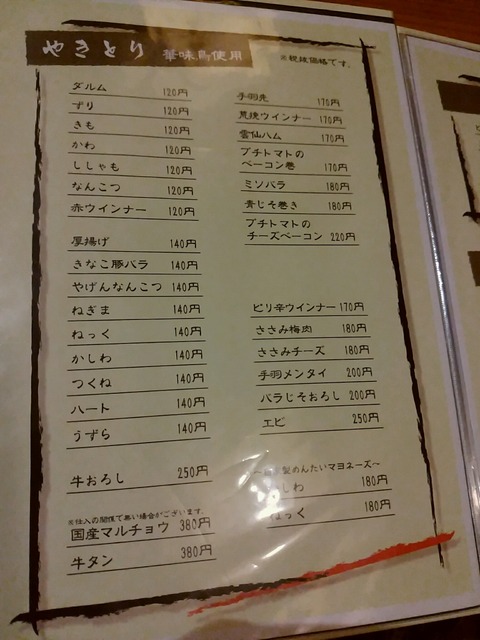 やきとり 華味鳥使用
※税抜価格です。
ダルム 120円
ずり 120円
きも 120円
かわ 120円
ししゃも 120円
なんこつ 120円
赤ウインナー 120円
厚揚げ 140円
きなこ豚バラ 140円
やげんなんこつ 140円
ねぎま 140円
ねっく 140円
かしわ 140円
つくね 140円
ハート 140円
うずら 140円
牛おろし 250円
※仕入の関係で無い場合がございます。
国産マルチョウ 380円
牛タン 380円
手羽先 170円
荒挽ウインナー 170円
雲仙ハム 170円
プチトマトの
ベーコン巻 170円
ミソバラ 180円
青じそ巻き 180円
プチトマトの
チーズベーコン 220円
ピリ辛ウインナー 170円
ささみ梅肉 180円
ささみチーズ 180円
手羽メンタイ 200円
バラじそおろし 200円
エビ 250円
製めんたいマヨネーズ〜
しわ 180円
ねっく 180円